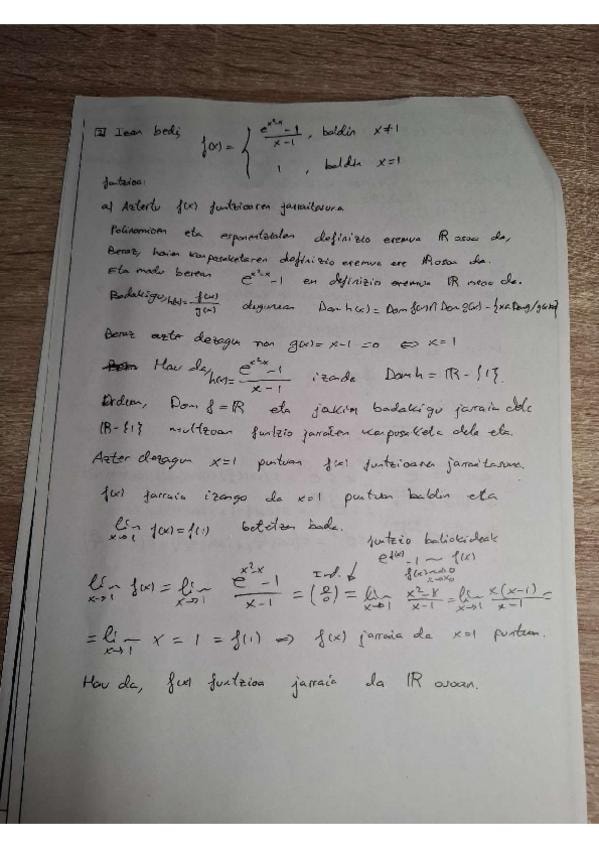 2 Izan bedi,
f(x) = { (e^(x²-x) - 1)/(x-1), baldin x≠1
1, baldin x=1
funtzioa:
a) Aztertu f(x) funtzioaren jarraitasuna
Polinomioen eta esponentzialen definizio eremua ℝ osoa da,
Beraz, haien konposaketaren definizio eremua ere ℝ osoa da.
Eta modu berean e^(x²-x) - 1 en definizio eremua ℝ osoa da.
Badakigu, h(x) = f(x)/g(x) dugunean Dom h(x) = Dom f(x) ∩ Dom g(x) - {x∈Dom g / g(x)=0}
Beraz azter dezagun non g(x) = x-1 = 0 ⇔ x = 1
Hau da, h(x) = (e^(x²-x) - 1)/(x-1) izanda Dom h = ℝ - {1}.
Orduan, Dom f = ℝ eta jakin badakigu jarraia dela
ℝ-{1} multzoan funtzio jarraien konposaketa dela eta.
Azter dezagun x=1 puntuan f(x) funtzioaren jarraitasuna.
f(x) jarraia izango da x=1 puntuan baldin eta
lim x→1 f(x) = f(1) betetzen bada.
funtzio baliokideak
e^f(x) - 1 ~ f(x)
f(x)→0
x→x₀
lim x→1 f(x) = lim x→1 (e^(x²-x) - 1)/(x-1) = (0/0) Ind. = lim x→1 (x²-x)/(x-1) = lim x→1 x(x-1)/(x-1) =
= lim x→1 x = 1 = f(1) ⇒ f(x) jarraia da x=1 puntuan.
Hau da, f(x) funtzioa jarraia da ℝ osoan.